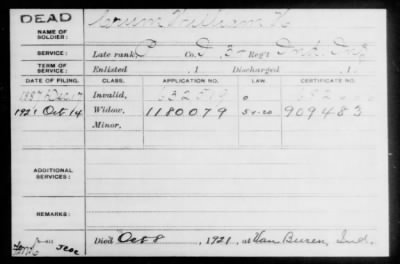 DEAD
NAME OF SOLDIER: Crum William H
SERVICE: Late rank P Co. D, 3 Reg't Ind. Inf
TERM OF SERVICE: Enlisted , 1 Discharged , 1 .
DATE OF FILING. CLASS. APPLICATION NO. LAW. CERTIFICATE NO.
1887 Dec 17 Invalid,
1921 Oct 14 Widow, 1180079 5-1-20 909483
Minor,
ADDITIONAL SERVICES:
REMARKS:
Died Oct 8 , 1921, at Van Buren, Ind.